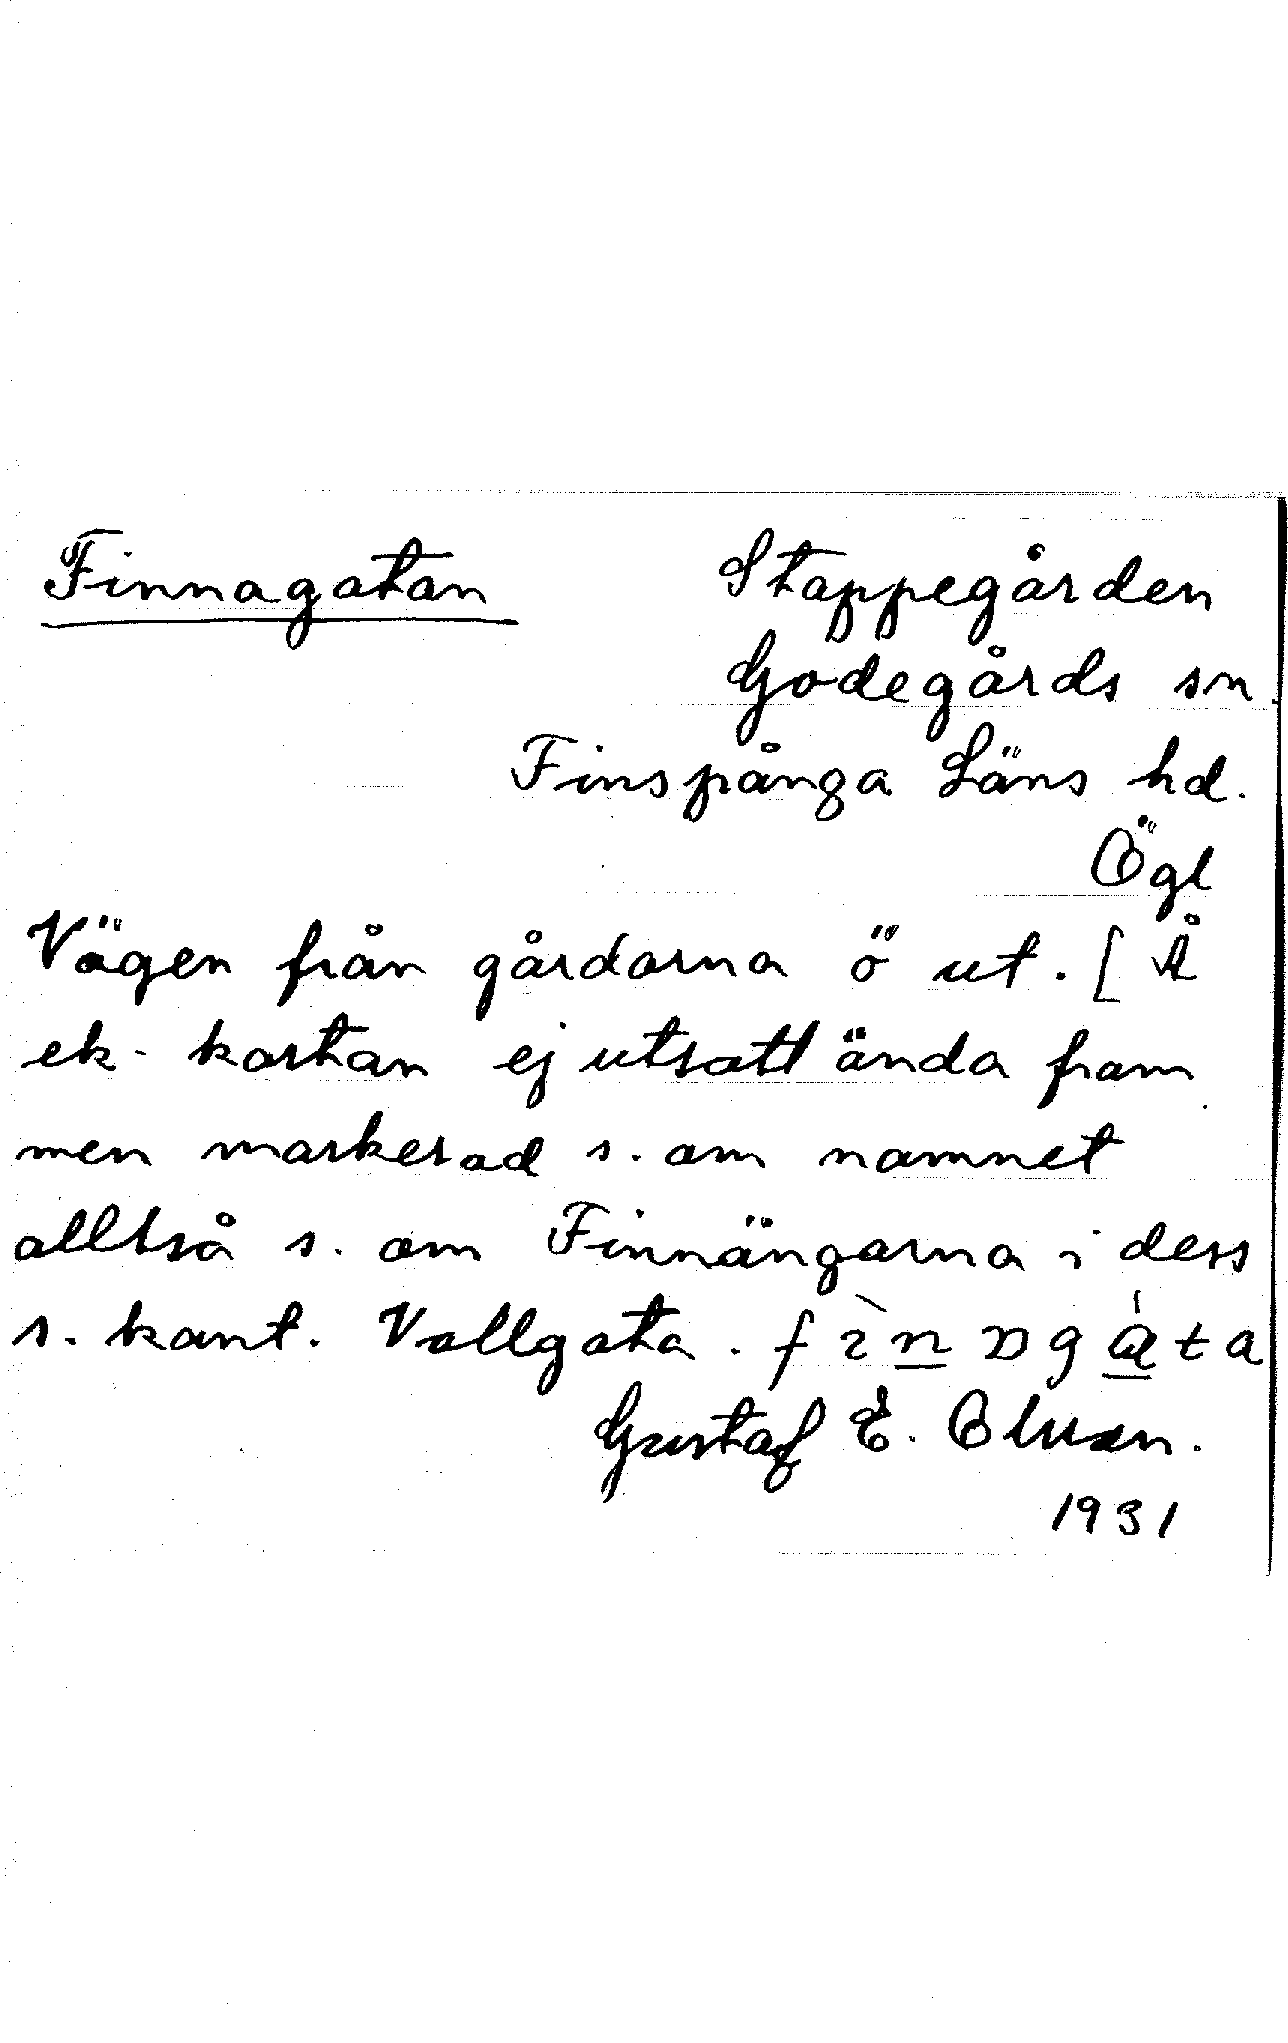 Finnagatan Stappegården
Godegårds sn.
Finspånga Läns hd.
Ögl
Vägen från gårdarna ö ut. [Å
ek- kartan ej utsatt ända fram
men markerad s. om namnet
alltså s. om Finnängarna i dess
s. kant. Vallgata.
Gustaf E.
1931